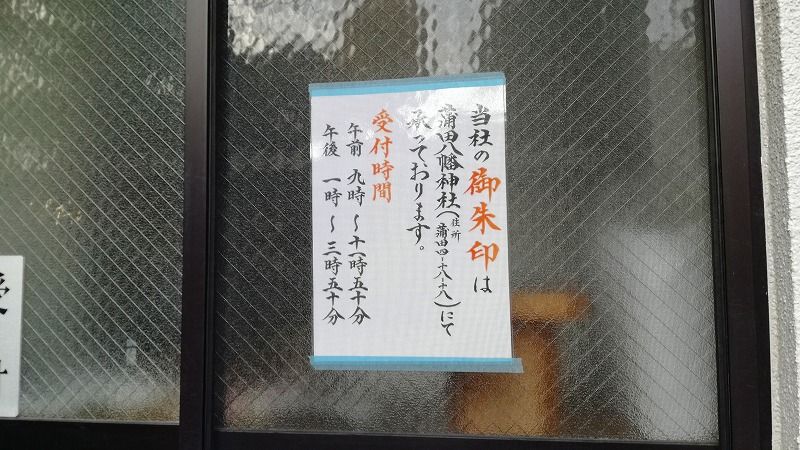 当社の御朱印は
蒲田八幡神社(住所 蒲田四-十八-十八)にて
承っております。
受付時間
午前 九時～十一時五十分
午後 一時～三時五十分
受